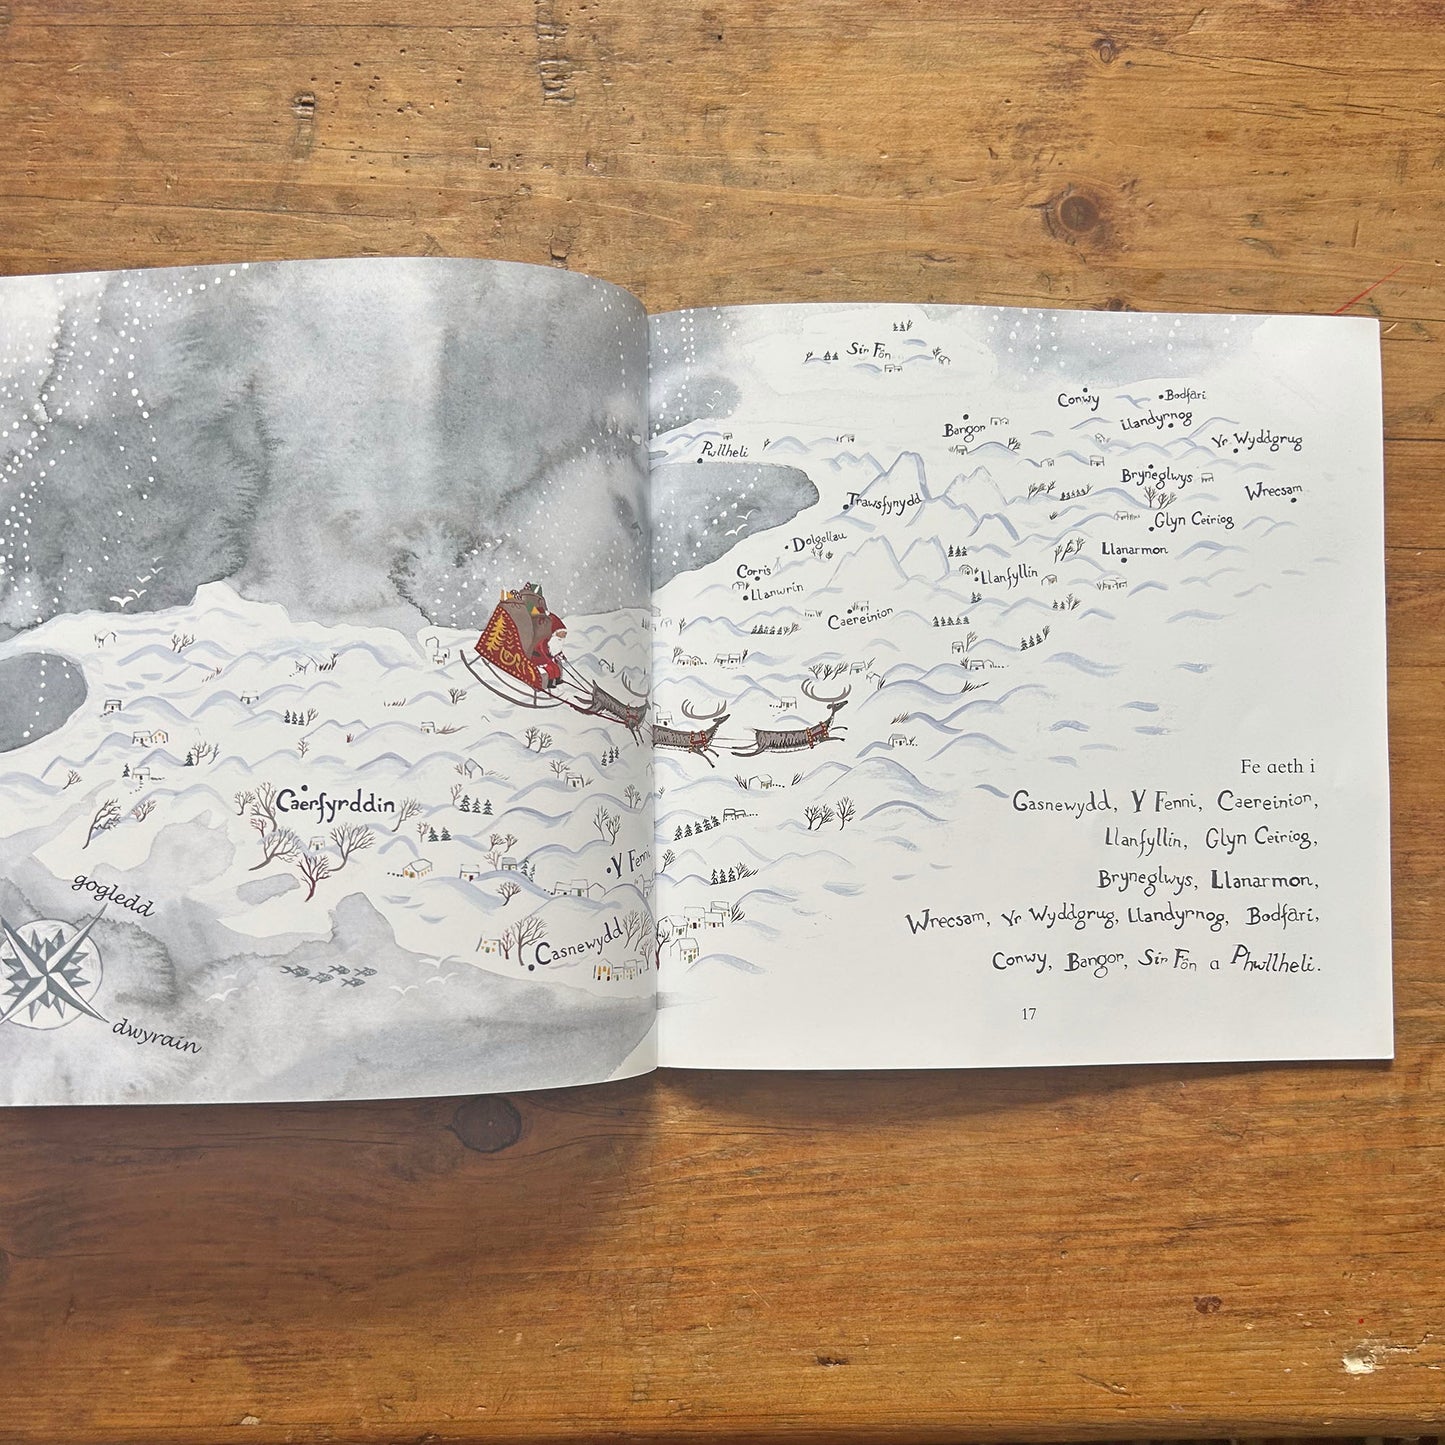 Caerfyrddin
Y Fenni
Casnewydd
gogledd
dwyrain
Sir Fôn
Conwy
Bodfari
Llandyrnog
Bangor
Yr Wyddgrug
Pwllheli
Bryneglwys
Wrecsam
Trawsfynydd
Glyn Ceiriog
Dolgellau
Llanarmon
Corris
Llanfyllin
Llanwrin
Caereinion
Fe aeth i
Gasnewydd, Y Fenni, Caereinion,
Llanfyllin, Glyn Ceiriog,
Bryneglwys, Llanarmon,
Wrecsam, Yr Wyddgrug, Llandyrnog, Bodfari,
Conwy, Bangor, Sir Fôn a Phwllheli.
17